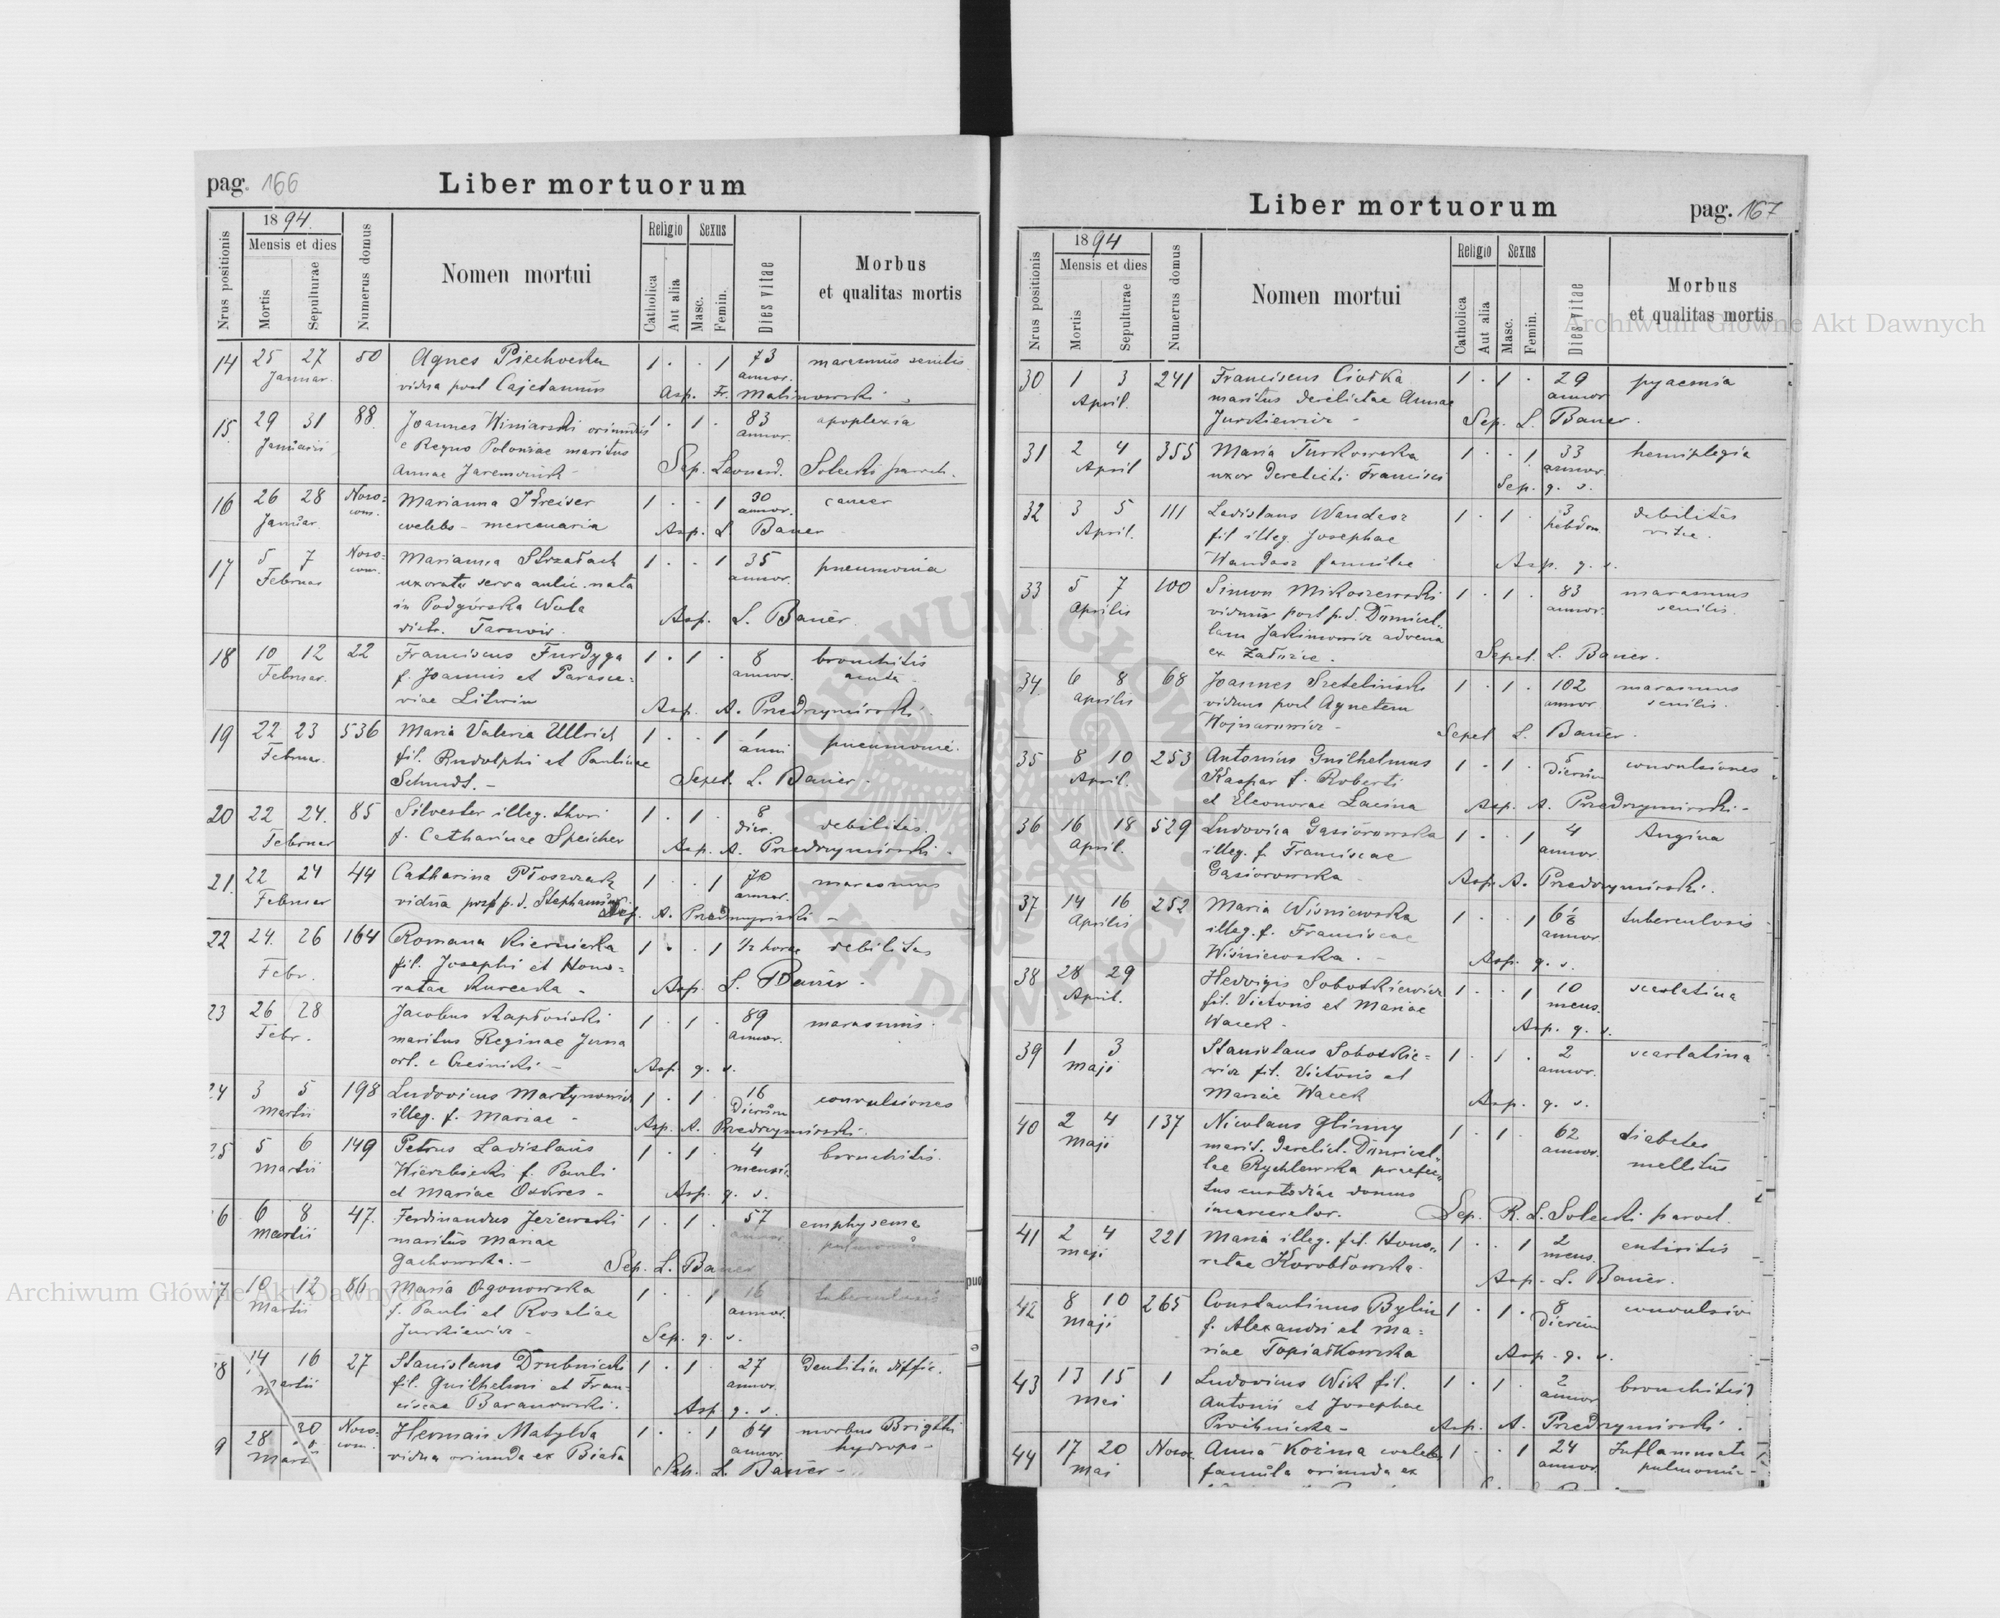 pag. 166
Liber mortuorum
Nrus positionis
1894.
Mensis et dies
Mortis
Sepulturae
Numerus domus
Nomen mortui
Religio
Catholica
Aut alia
Sexus
Masc.
Femin.
Dies vitae
Morbus
et qualitas mortis
14 25 27 50 Agnes Piechocka 1 . . 1 73 marasmus senilis
Januar. vidua post Cajetanum annor.
Asp. Fr. Malinowski
15 29 31 88 Joannes Winiarski oriundus 1 . 1 . 83 apoplexia
Januarii e Regno Poloniae maritus annor.
Annae Jaremczuk Sep. Leonard. Solecki paroch.
16 26 28 Novo= Marianna Kreiser 1 . . 1 30 cancer
Januar. com. caelebs - mercenaria annor.
Asp. L. Bauer
17 5 7 Novo= Marianna Strzałach 1 . . 1 35 pneumonia
Februar com. uxorata serva aulic. nata annor.
in Podgórska Wola
distr. Tarnów. Asp. L. Bauer.
18 10 12 22 Franciscus Furdyga 1 . 1 . 8 bronchitis
Februar. f. Joannis et Parasce= annor. acuta
viae Litwin Asp. A. Przedrzymirski
19 22 23 536 Maria Valeria Ullrich 1 . . 1 1 pneumonia.
Februar. fil. Rudolphi et Paulinae anni
Schmidt. - Sepel. L. Bauer.
20 22 24. 85 Silvester illeg. thori 1 . 1 . 8 debilitas.
Februar f. Catharinae Speicher dier.
Asp. A. Przedrzymirski -
21. 22 24 44 Catharina Płoszczak 1 . . 1 70 marasmus
Februar vidua post p. d. Stephanum annor.
Asp. A. Przedrzymirski -
22 24. 26 164 Romana Kiernicka 1 . . 1 1/2 horae debilitas
Febr. fil. Josephi et Hono=
ratae Kurecka - Asp. L. Bauer.
23 26 28 Jacobus Kapłoński 1 . 1 . 89 marasmus.
Febr. maritus Reginae annor.
Asp. q. s.
24 3 5 198 Ludovicus Martynowicz 1 . 1 . 16 convulsiones
Martii illeg. f. Mariae - Dierum
Asp. A. Przedrzymirski.
25 5 6 149 Petrus Ladislaus 1 . 1 . 4 bronchitis.
Martii Wierzbicki f. Pauli mensi
et Mariae Asp. q. s.
6 6 8 47. Ferdinandus Jeżewski 1 . 1 . 57 emphysema
Martii maritus Mariae annor. pulmonum
Gachowska. - Sep. L. Bauer
7 10 12 86 Maria Ogonowska 1 . . 1 16 tuberculosis
Martii f. Pauli et Rosaliae annor.
Jurkiewicz - Sep. q. s.
8 14 16 27 Stanislaus Drubnicki 1 . 1 . 27 Dentitia diffic.
Martii fil. Guilhelmi et Fran= annor.
ciscae Baranowski. Asp q. s.
9 28 30 Novo= Herman Matylda 1 . . 1 64 morbus Brigthi
Marti com. vidua oriunda ex Biała annor hydrops -
Sep. L. Bauer -
Liber mortuorum
pag. 167
Nrus positionis
1894
Mensis et dies
Mortis
Sepulturae
Numerus domus
Nomen mortui
Religio
Catholica
Aut alia
Sexus
Masc.
Femin.
Dies vitae
Morbus
et qualitas mortis
30 1 3 241 Franciscus Ciołka 1 . 1 . 29 pyaemia
April. maritus derelictae Annae annor
Jurkiewicz - Sep. L. Bauer.
31 2 4 355 Maria Turkowska 1 . . 1 33 hemiplegia
April uxor derelicti Francisci annor.
Sep. q. s.
32 3 5 111 Ladislaus Wandasz 1 . 1 . 3 debilitas
April. fil illeg. Josephae hebdom. vitae.
Wandasz famulae Asp. q. s.
33 5 7 100 Simon Mikoszewski 1 . 1 . 83 marasmus
Aprilis viduus post p. d. Dominicel= annor. senilis.
lam Jakimowicz advena
ex Załuże. Sepel. L. Bauer.
34. 6 8 68 Joannes Szeteliński 1 . 1 . 102 marasmus
Aprilis viduus post Agnetem annor senilis.
Wojnarowicz - Sepel L. Bauer.
35 8 10 253 Antonius Guilhelmus 1 . 1 . 5 convulsiones
April. Kaspar f. Roberti Dierum
et Eleonorae Łacina Asp. A. Przedrzymirski -
36 16 18 529 Ludovica Gąsiorowska 1 . . 1 4 Angina
April. illeg. f. Franciscae annor.
Gąsiorowska Asp. A. Przedrzymirski.
37 14 16 252 Maria Wiśniewska 1 . . 1 6 1/2 tuberculosis
Aprilis illeg. f. Franciscae annor
Wiśniewska. - Asp. q. s.
38 28 29 Hedvigis Sobotkiewicz 1 . . 1 10 scarlatina
April. fil. Victoris et Mariae mens.
Wacek - Asp. q. s.
39 1 3 Stanislaus Sobotkie= 1 . 1 . 2 scarlatina
Maji wicz fil. Victoris et annor.
Mariae Wacek Asp. q. s.
40 2 4 137 Nicolaus Glinny 1 . 1 . 62 diabetes
Maji marit. derelict. Dominicel= annor. mellitus
lae Rychlewska praefec=
tus custodiae domus
incarcerator. Sep. R. L. Solecki paroch.
41 2 4 221 Maria illeg. fil. Hono= 1 . . 1 2 entiritis
Maji ratae Korobłowska. mens.
Asp. L. Bauer.
42 8 10 265 Constantinus Bylin 1 . 1 . 8 convulsio
Maji f. Alexandri et Ma= Dierum
riae Topiałkowska Asp. q. s.
43 13 15 1 Ludovicus Wilk fil. 1 . 1 . 2 bronchitis
Mai Antonii et Josephae annor
Asp. A. Przedrzymirski.
44 17 20 Novo Anna Koźma caelebs 1 . . 1 24 Inflammatio
Mai famula oriunda ex annor. pulmonum -
Archiwum Główne Akt Dawnych
Archiwum Główne Akt Dawnych
ARCHIWUM GŁÓWNE AKT DAWNYCH